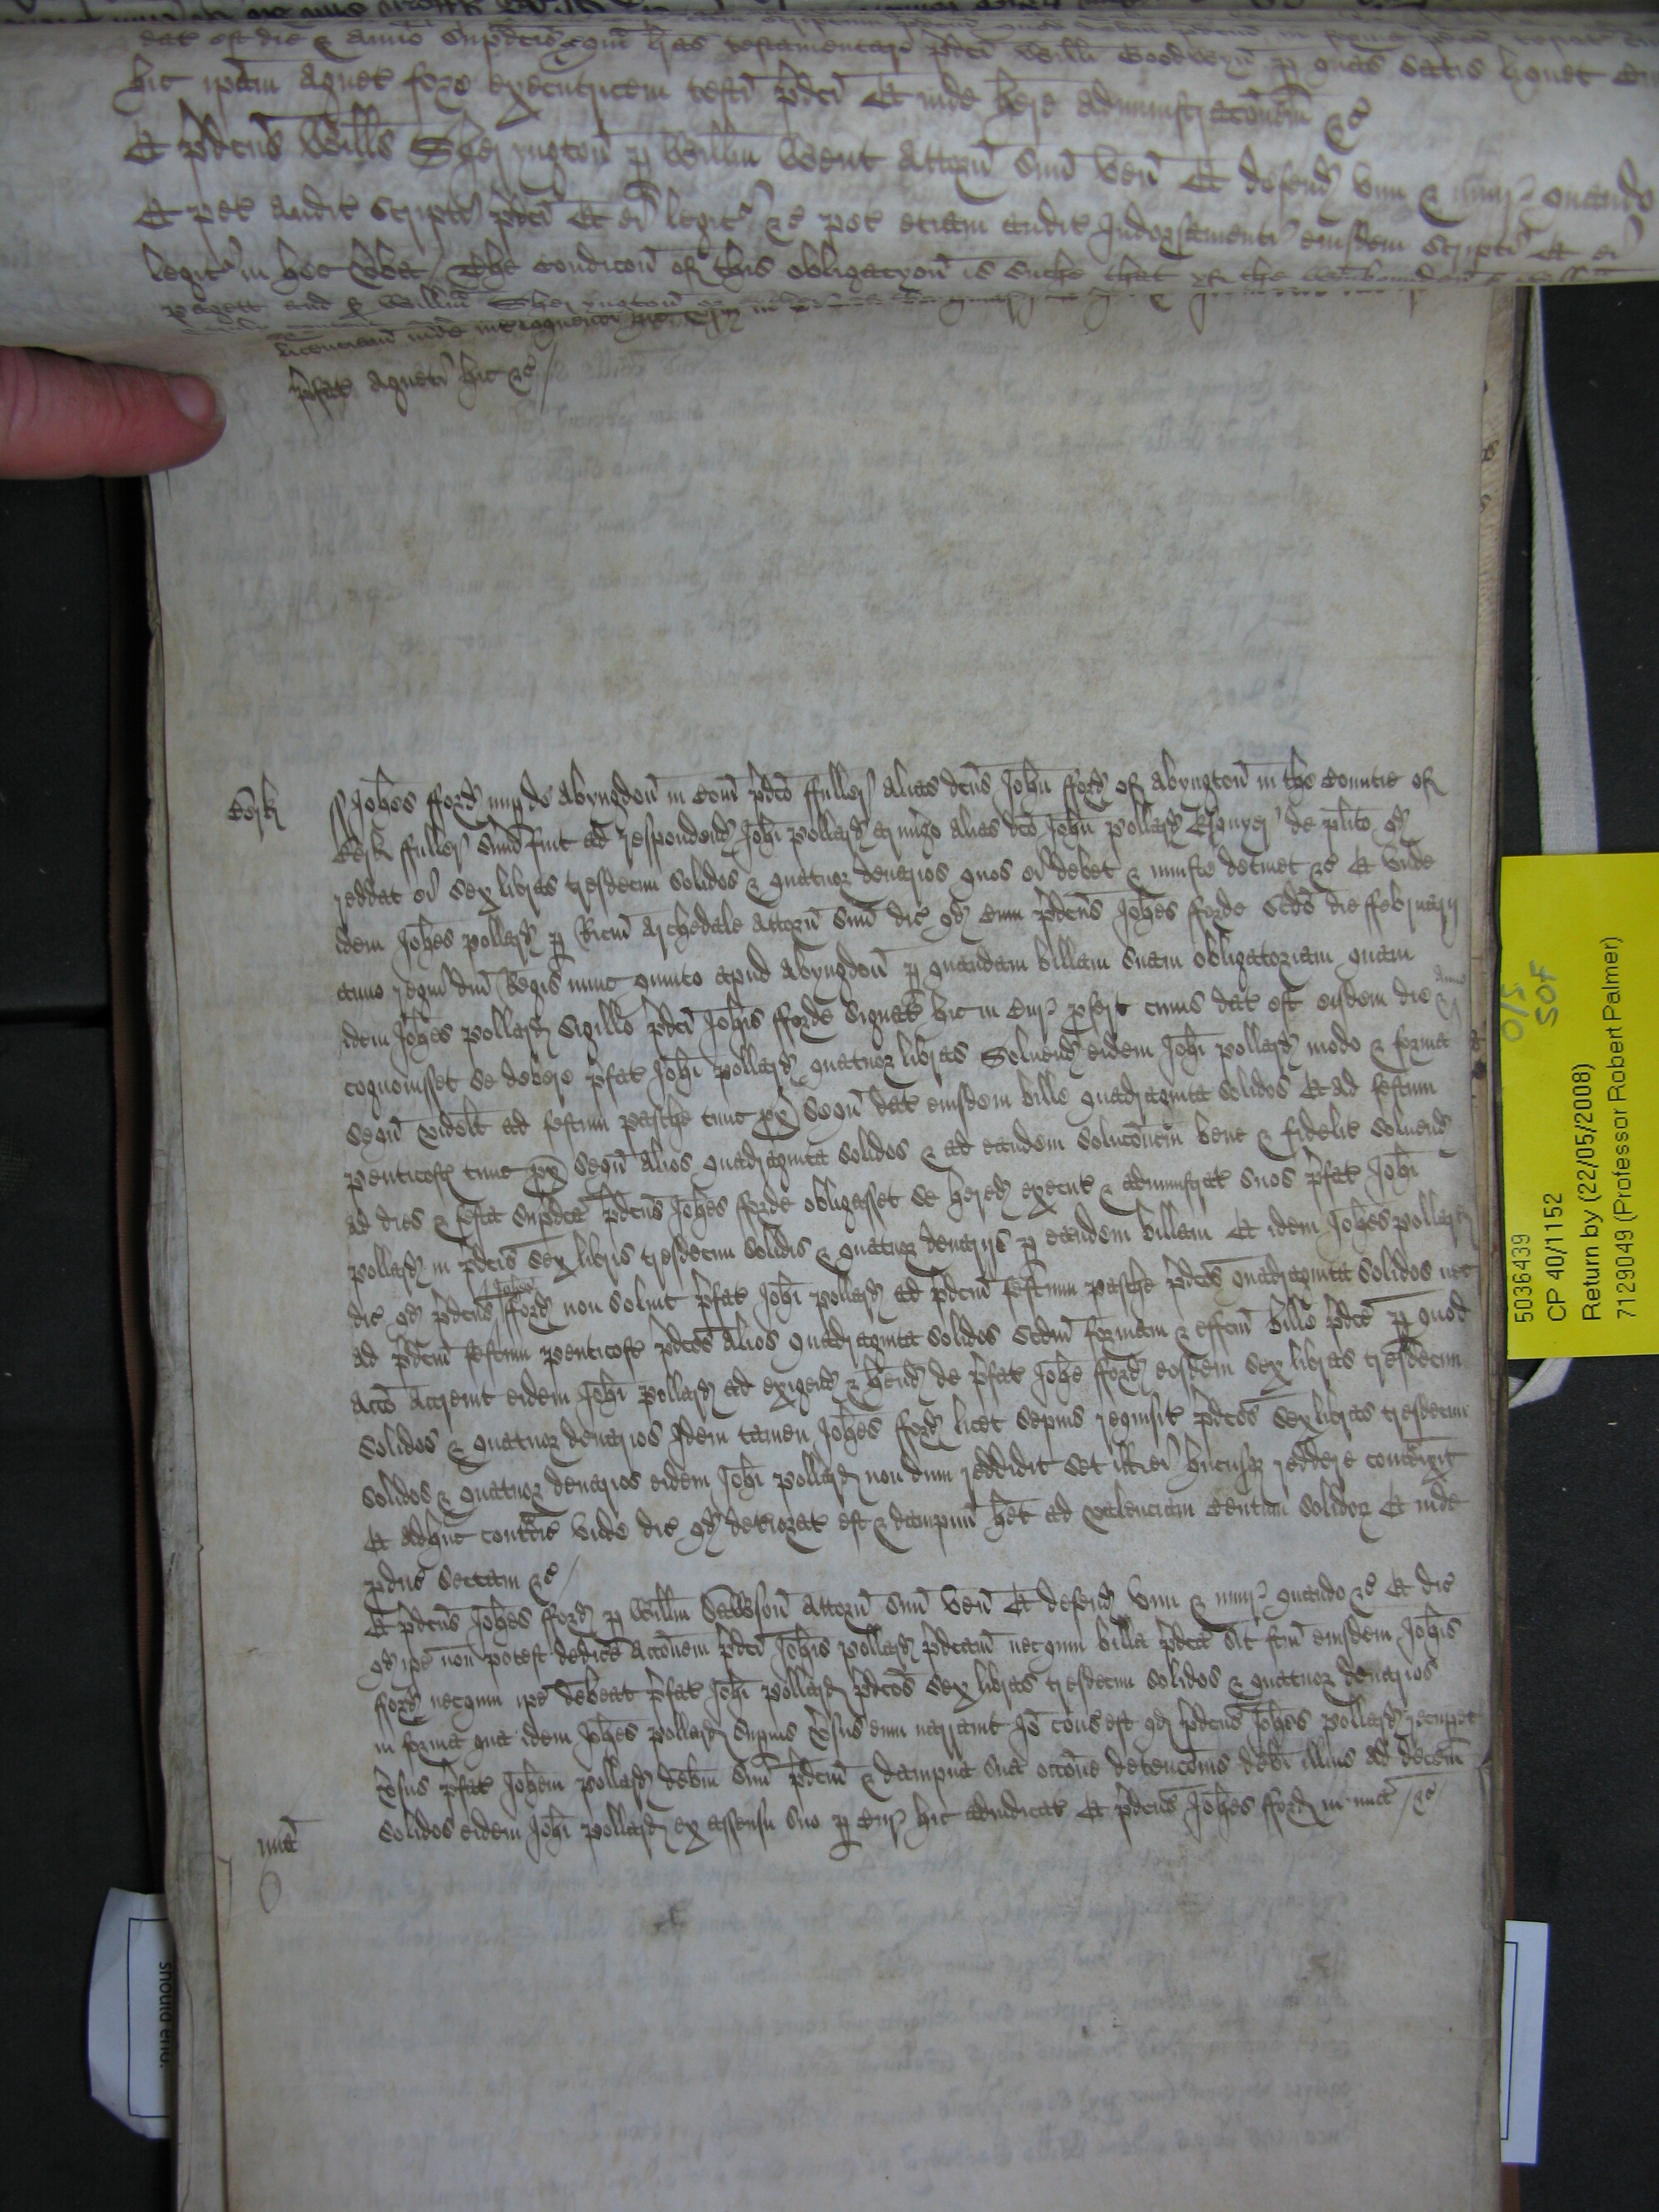 dat est die & Anno Supdcis
hic ipam Agnet fore executricem testi pdci Et inde here administracoem &c
Et pdcus Wills Sheryngton p Willm Went Attorn suu ven Et defend vim & iniur quando
Et pet audit Scripti pdci Et ei legit &c pet etiam audit Indorsamenti eiusdem Scripti Et ei
legit in hec verba The Condicon of this obligacyon is suche that yf the
pfat Agneti hic &c
Berk
Johes fford nup de Abyngdon in Com pdco ffuller alias dcus John fford of Abyngton in the Countie of
Berk ffuller sum fuit ad respondend Johi pollard armigo alias dco John pollard Esquyer de plito qd
reddat ei sex libras tresdecim solidos & quatuor denarios quos ei debet & iniuste detinet &c Et unde
idem Johes pollard p Ricm Archedale Attorn suu dic qd cum pdcus Johes fforde scdo die ffebruarij
anno regni dni Regis nunc quinto apud Abyngdon p quandam billam suam obligatoriam quam
idem Johes pollard sigillo pdci Johis fforde signat hic in Cur pfert cuius dat est eisdem die & anno
cognovisset se debere pfat Johi pollard quatuor libras Solvend eidem Johi pollard modo & forma
sequn videlt ad festum pasche tunc px sequn dat eiusdem bille quadraginta solidos Et ad festum
penticost tunc px sequn alios quadraginta solidos & ad eandem solucoem bene & fidelit solvend
ad dies & festa supdca pdcus Johes fforde obligasset se hered execut & administrat suos pfat Johi
pollard in pdcis sex libris tresdecim solidis & quatuor denarijs p eandem billam Et idem Johes pollard
dic qd pdcus Johes fford non solvit pfat Johi pollard ad pdcm festum pasche pdcos quadraginta solidos nec
ad pdcm festum penticost pdcos alios quadraginta solidos scdm formam & effcm bille pdce p quod
acco accrevit eidem Johi pollard ad exigend & hend de pfat Johe fford eosdem sex libras tresdecim
solidos & quatuor denarios Idem tamen Johes fford licet sepius requisit pdcos sex libras tresdecim
solidos & quatuor denarios eidem Johi pollard non dum reddidit Set ill ei hucusq reddere contradixit
Et adhuc contradic unde dic qd deteriorat est & dampnu het ad valenciam Centum solidor Et inde
pduc sectam &c
Et pdcus Johes fford p Willm Sawson Attorn suu ven Et defend vim & iniur quando &c Et dic
qd ipe non potest dedicere accoem pdci Johis pollard pdcam nec quin billa pdca sit fcm eiusdem Johis
fford nec quin ipe debeat pfat Johi pollard pdcos sex libras tresdecim solidos & quatuor denarios
in forma qua idem Johes pollard supius vsus eum narravit Io cons est qd pdcus Johes pollard recupet
vsus pfat Johem pollard debm suu pdcm & dampna sua occone detencois debi illius ad decem
solidos eidem Johi pollard ex assensu suo p Cur hic adiudicat Et pdcus Johes fford in mia &c
mia
5036439
CP 40/1152
Return by (22/05/2008)
7129049 (Professor Robert Palmer)
O/S
SOF
should end.